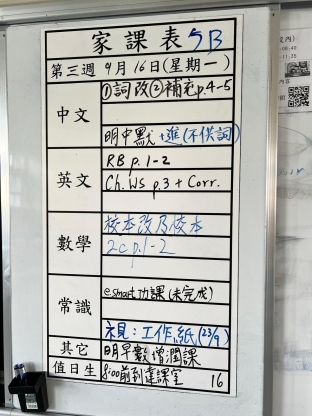 家課表 5B
第三週 9月16日(星期一)
中文
①詞改②補充p.4-5
明中默+進(不供詞)
英文
RB p.1-2
Ch. WS p.3 + Corr.
數學
校本改及校本
2C p.1-2
常識
e.smart功課(未完成)
視:工作紙(23/9)
其它
明早數增潤課
值日生
8:00前到達課室 16